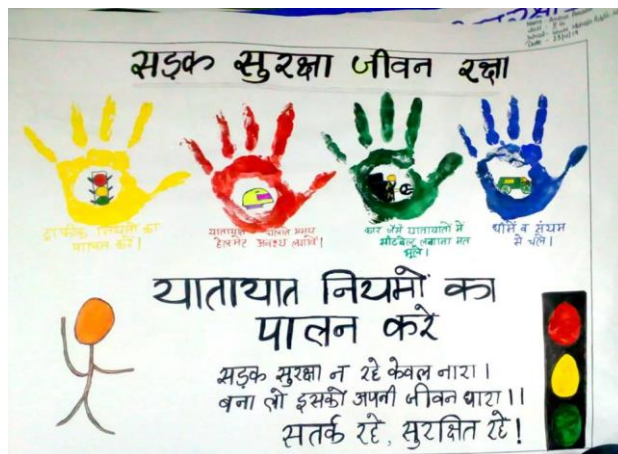 सड़क सुरक्षा जीवन रक्षा
ट्राफिक नियमों का
पालन करें।
हेलमेट अवश्य लगायें।
कार जैसे यातायातों में
सीटबेल्ट लगाना मत
भूलें।
धीमें व संयम
से चलें।
यातायात नियमों का
पालन करे
सड़क सुरक्षा न रहे केवल नारा।
बना लो इसको अपनी जीवन धारा।।
सतर्क रहे, सुरक्षित रहे!